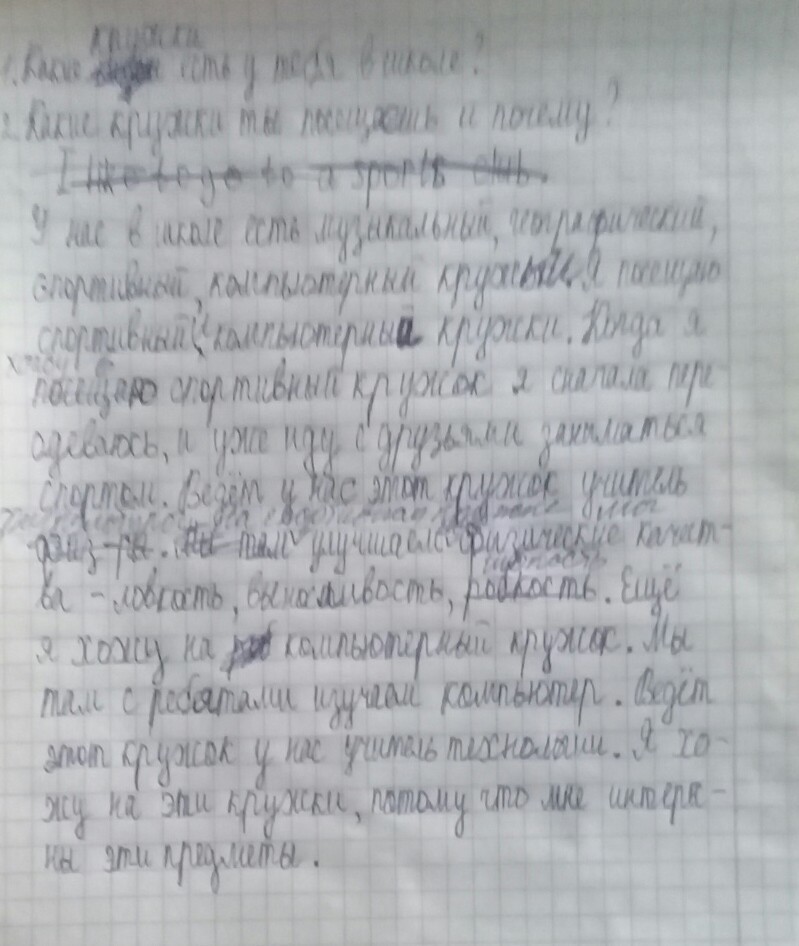 кружки
1. Какие есть у тебя в школе?
2. Какие кружки ты посещаешь и почему?
I like to go to a sports club.
У нас в школе есть музыкальный, географический,
спортивный, компьютерный кружки. Я посещаю
спортивный и компьютерный кружки. Когда я
хожу в
посещаю спортивный кружок я сначала пере
одеваюсь, и уже иду с друзьями заниматься
спортом. Ведёт у нас этот кружок учитель
физ-ры. Мы там улучшаем физические качест-
ва - ловкость, выносливость, робкость. Ещё
я хожу на компьютерный кружок. Мы
там с ребятами изучаем компьютер. Ведёт
этот кружок у нас учитель технологии. Я хо-
жу на эти кружки, потому что мне интерес-
ны эти предметы.